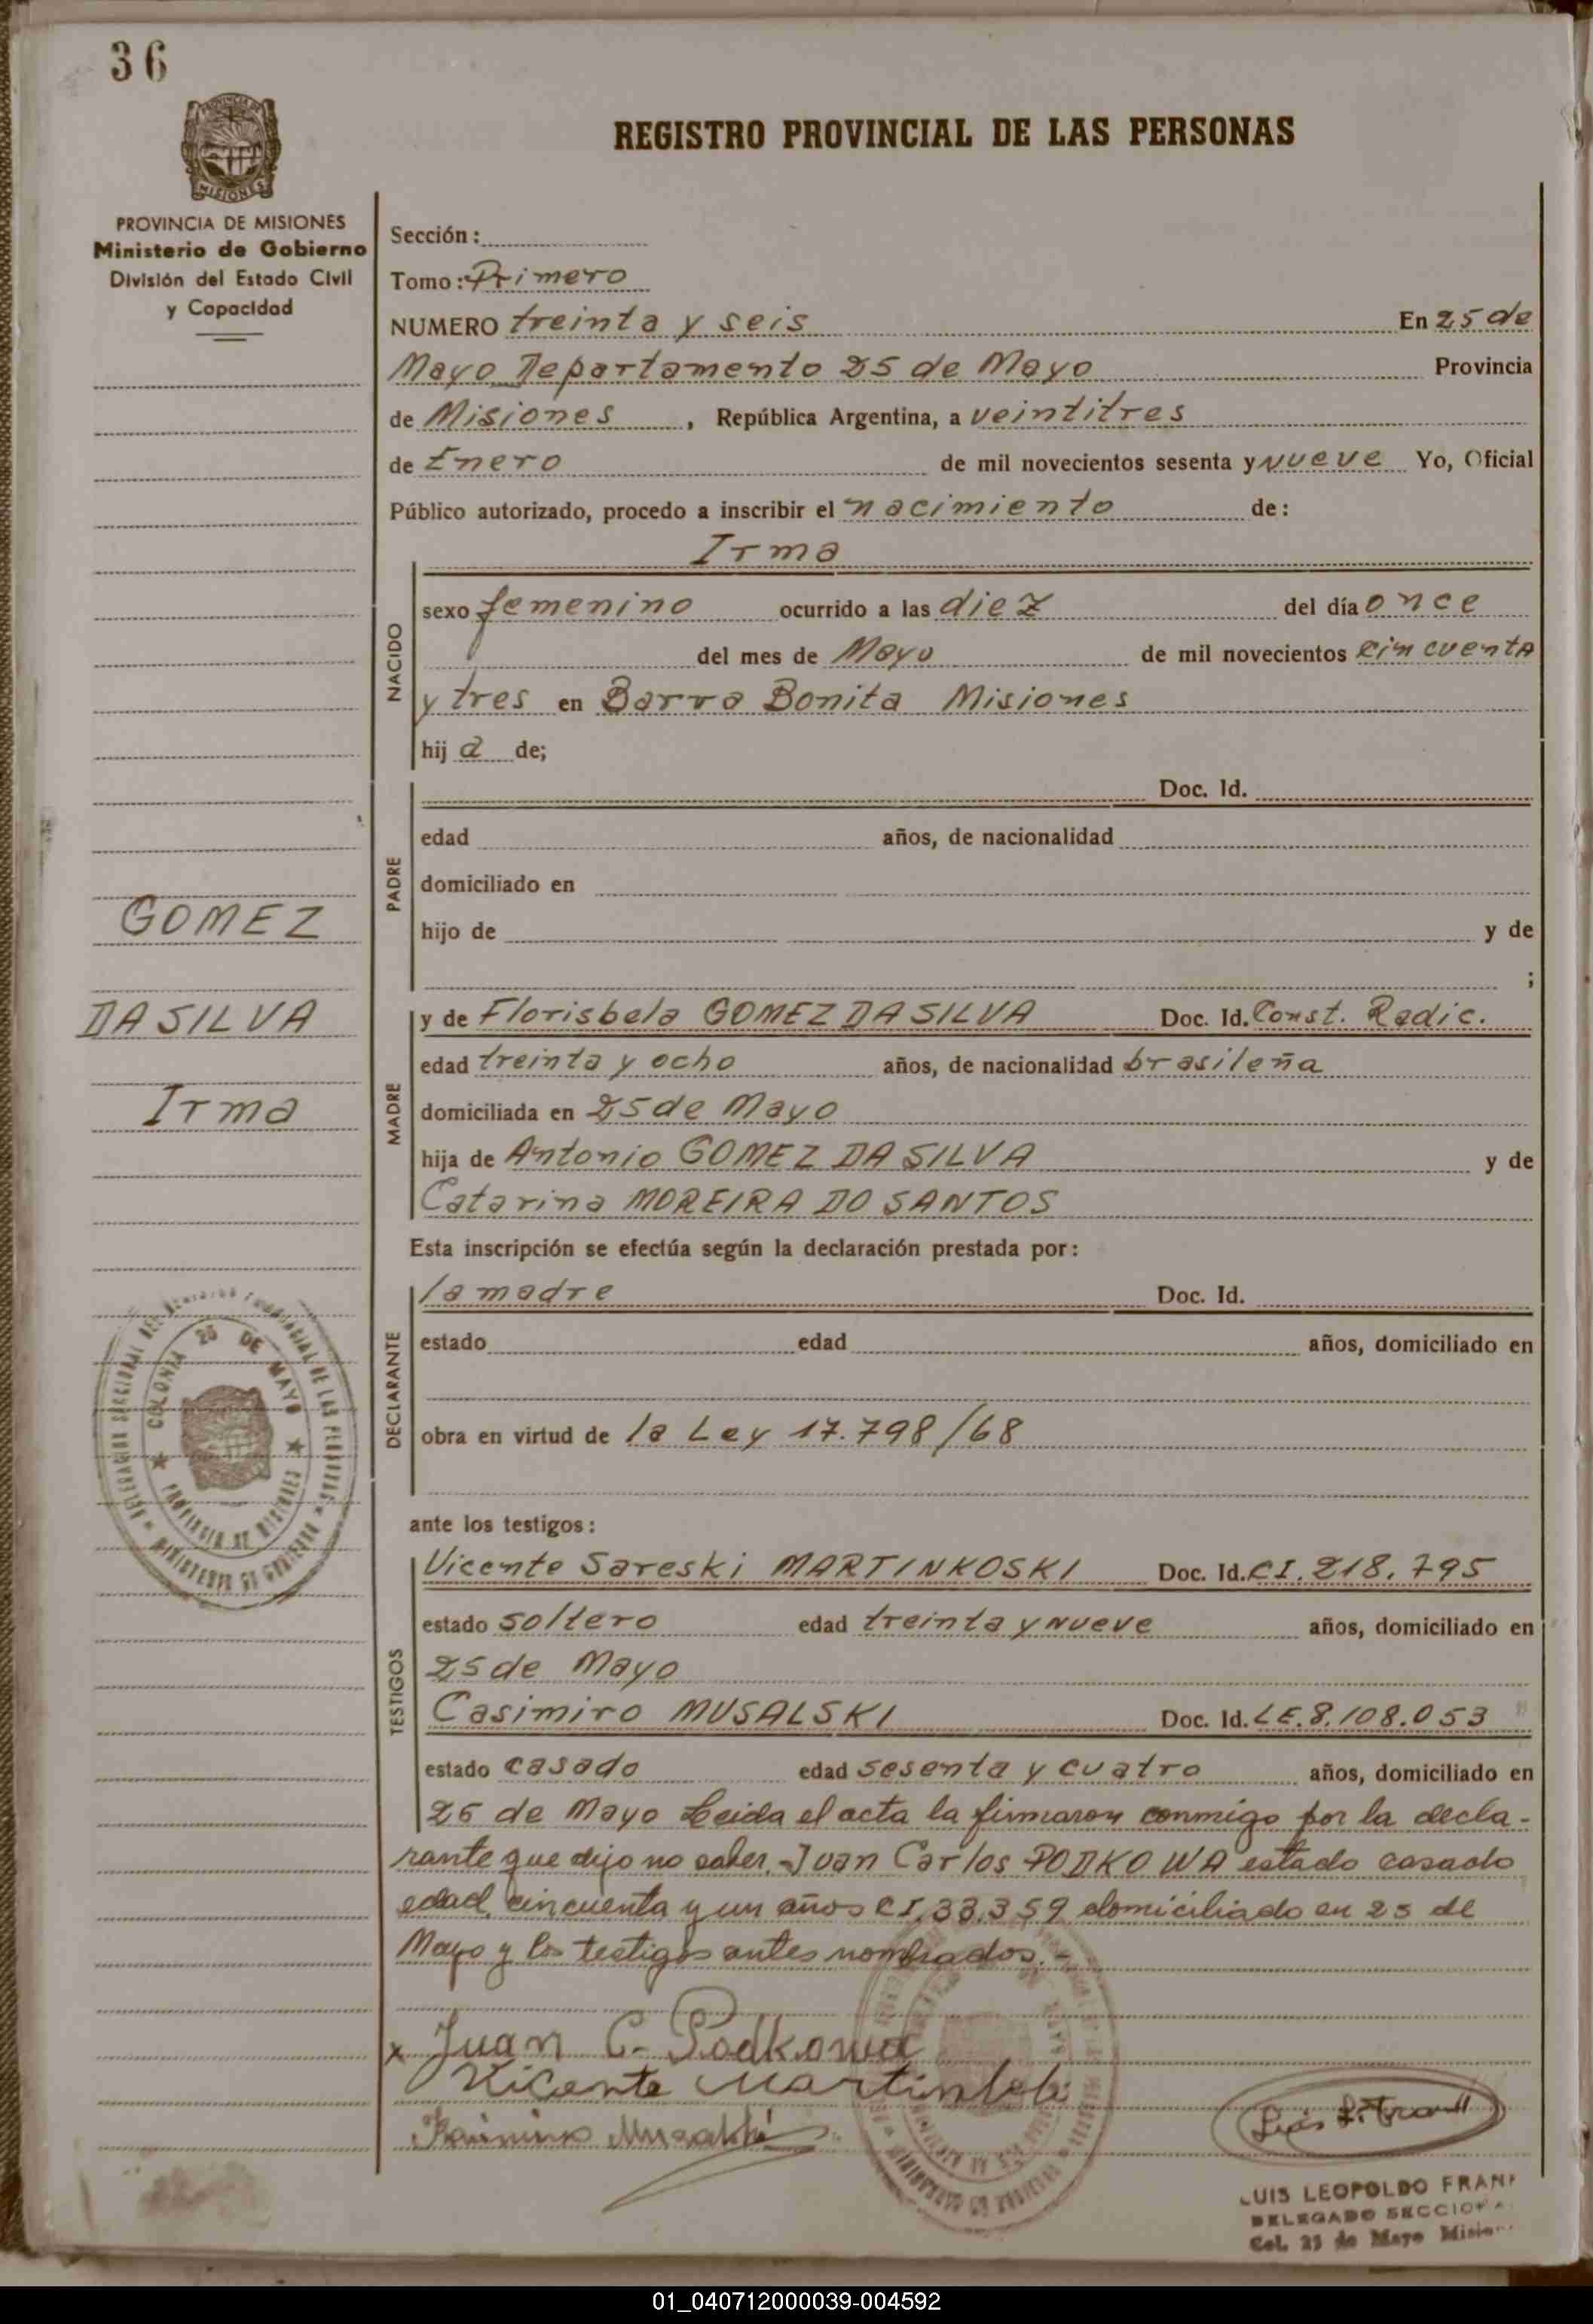 36
PROVINCIA DE MISIONES
Ministerio de Gobierno
División del Estado Civil
y Capacidad
REGISTRO PROVINCIAL DE LAS PERSONAS
Sección:
Tomo: Primero
NUMERO treinta y seis En 25 de
Mayo Departamento 25 de Mayo Provincia
de Misiones, República Argentina, a veintitres
de Enero de mil novecientos sesenta y nueve Yo, Oficial
Público autorizado, procedo a inscribir el nacimiento de:
Irma
NACIDO
sexo femenino ocurrido a las diez del día once
del mes de Mayo de mil novecientos cincuenta
y tres en Barra Bonita Misiones
hija de;
PADRE
Doc. Id.
edad años, de nacionalidad
domiciliado en
hijo de y de
;
GOMEZ
DA SILVA
Irma
MADRE
y de Florisbela GOMEZ DA SILVA Doc. Id. Const. Radic.
edad treinta y ocho años, de nacionalidad brasileña
domiciliada en 25 de Mayo
hija de Antonio GOMEZ DA SILVA y de
Catarina MOREIRA DO SANTOS
Esta inscripción se efectúa según la declaración prestada por:
DECLARANTE
la madre Doc. Id.
estado edad años, domiciliado en
obra en virtud de la Ley 17.798/68
COLONIA 25 DE MAYO
PROVINCIA DE MISIONES
MINISTERIO DE GOBIERNO
ante los testigos:
TESTIGOS
Vicente Sareski MARTINKOSKI Doc. Id. CI. 218.795
estado soltero edad treinta y nueve años, domiciliado en
25 de Mayo
Casimiro MUSALSKI Doc. Id. LE. 8.108.053
estado casado edad sesenta y cuatro años, domiciliado en
25 de Mayo Leida el acta la firmaron conmigo por la decla-
rante que dijo no saber. Juan Carlos PODKOWA estado casado
edad cincuenta y un años CI.33.359 domiciliado en 25 de
Mayo y los testigos antes nombrados.-
x Juan C. Podkowa
Vicente
LUIS LEOPOLDO FRANK
DELEGADO SECCIONA
Col. 25 de Mayo Mision
01_040712000039-004592